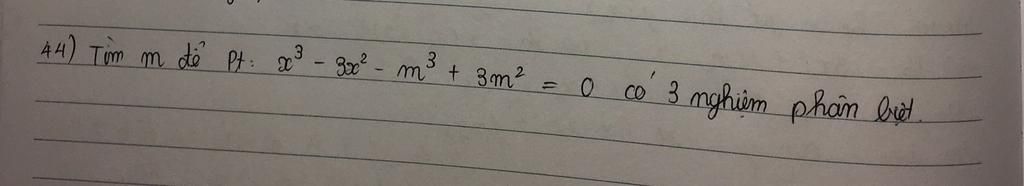 44) Tìm m để Pt: x³ - 3x² - m³ + 3m² = 0 có 3 nghiệm phân biệt.